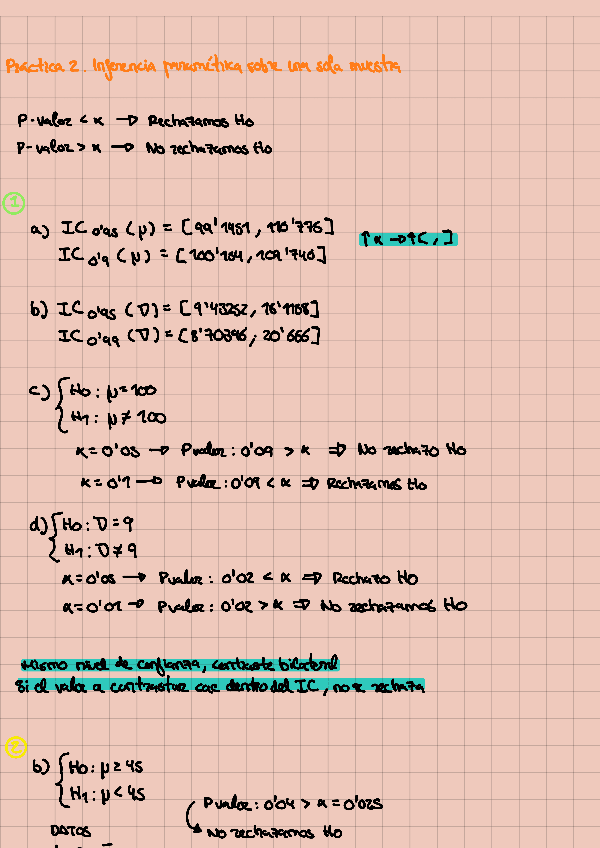 Práctica 2. Inferencia paramétrica sobre una sola muestra
P-valor < α → Rechazamos H0
P-valor > α → No rechazamos H0
1
a) IC 0'95 (μ) = [99'1451, 110'776]
IC 0'9 (μ) = [100'164, 109'746]
↑α → ↑[ , ]
b) IC 0'95 (σ) = [9'43252, 18'1168]
IC 0'99 (σ) = [8'70396, 20'666]
c) { H0 : μ = 100
H1 : μ ≠ 100
α = 0'05 → Pvalor : 0'09 > α ⇒ No rechazo H0
α = 0'1 → Pvalor : 0'09 < α ⇒ Rechazamos H0
d) { H0 : σ = 9
H1 : σ ≠ 9
α = 0'05 → Pvalor : 0'02 < α ⇒ Rechazo H0
α = 0'01 → Pvalor : 0'02 > α ⇒ No rechazamos H0
Mismo nivel de confianza, contraste bilateral
Si el valor a contrastar cae dentro del IC, no se rechaza
2
b) { H0 : μ ≥ 45
H1 : μ < 45
Pvalor : 0'04 > α = 0'025
→ No rechazamos H0
DATOS